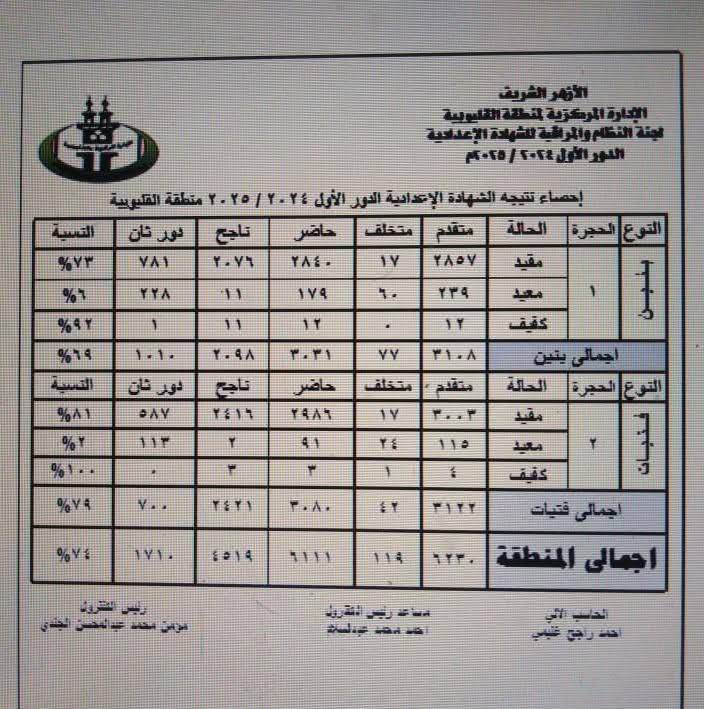 الأزهر الشريف
الإدارة المركزية لمنطقة القليوبية
لجنة النظام والمراقبة للشهادة الإعدادية
الدور الأول ٢٠٢٤ / ٢٠٢٥م
إحصاء نتيجه الشهادة الإعدادية الدور الأول ٢٠٢٤ / ٢٠٢٥ منطقة القليوبية
النوع الحجرة الحالة متقدم متخلف حاضر ناجح دور ثان النسبة
بنين ١ مقيد ٢٨٥٧ ١٧ ٢٨٤٠ ٢٠٧٦ ٧٨١ ٧٣%
معيد ٢٣٩ ٦٠ ١٧٩ ١١ ٢٢٨ ٦%
كفيف ١٢ ٠ ١٢ ١١ ١ ٩٢%
اجمالى بنين ٣١٠٨ ٧٧ ٣٠٣١ ٢٠٩٨ ١٠١٠ ٦٩%
النوع الحجرة الحالة متقدم متخلف حاضر ناجح دور ثان النسبة
فتيات ٢ مقيد ٣٠٠٣ ١٧ ٢٩٨٦ ٢٤١٦ ٥٨٧ ٨١%
معيد ١١٥ ٢٤ ٩١ ٢ ١١٣ ٢%
كفيف ٤ ١ ٣ ٣ ٠ ١٠٠%
اجمالى فتيات ٣١٢٢ ٤٢ ٣٠٨٠ ٢٤٢١ ٧٠٠ ٧٩%
اجمالى المنطقة ٦٢٣٠ ١١٩ ٦١١١ ٤٥١٩ ١٧١٠ ٧٤%
الحاسب الآلي مساعد رئيس الكنترول رئيس الكنترول
احمد راجح غنيمي احمد محمد عبدالسلام مؤمن محمد عبدالمحسن الجندي